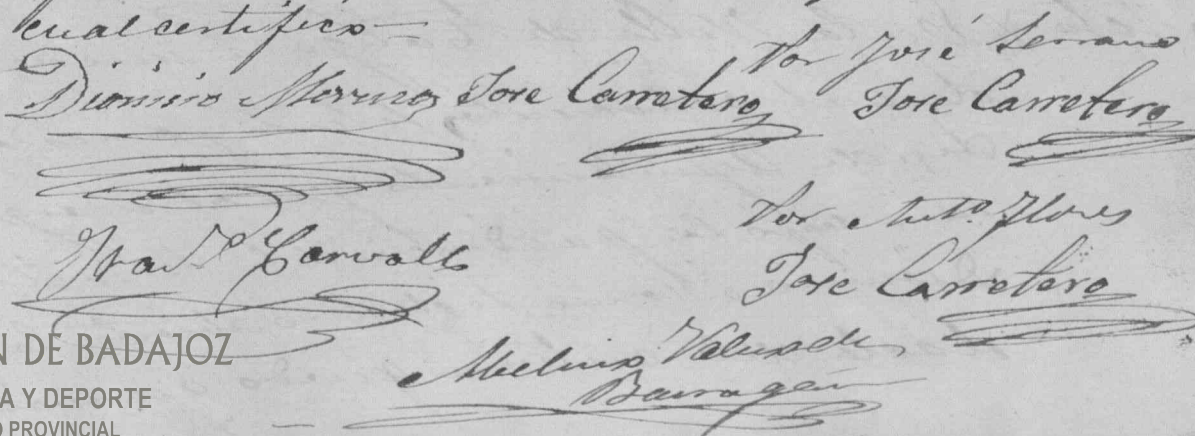 cual certifico—
Dionisio Moreno Jose Carretero
Por José Serrano
Jose Carretero
Por Anto. Flores
Jose Carretero
Carvallo
Barragán
N DE BADAJOZ
A Y DEPORTE
O PROVINCIAL